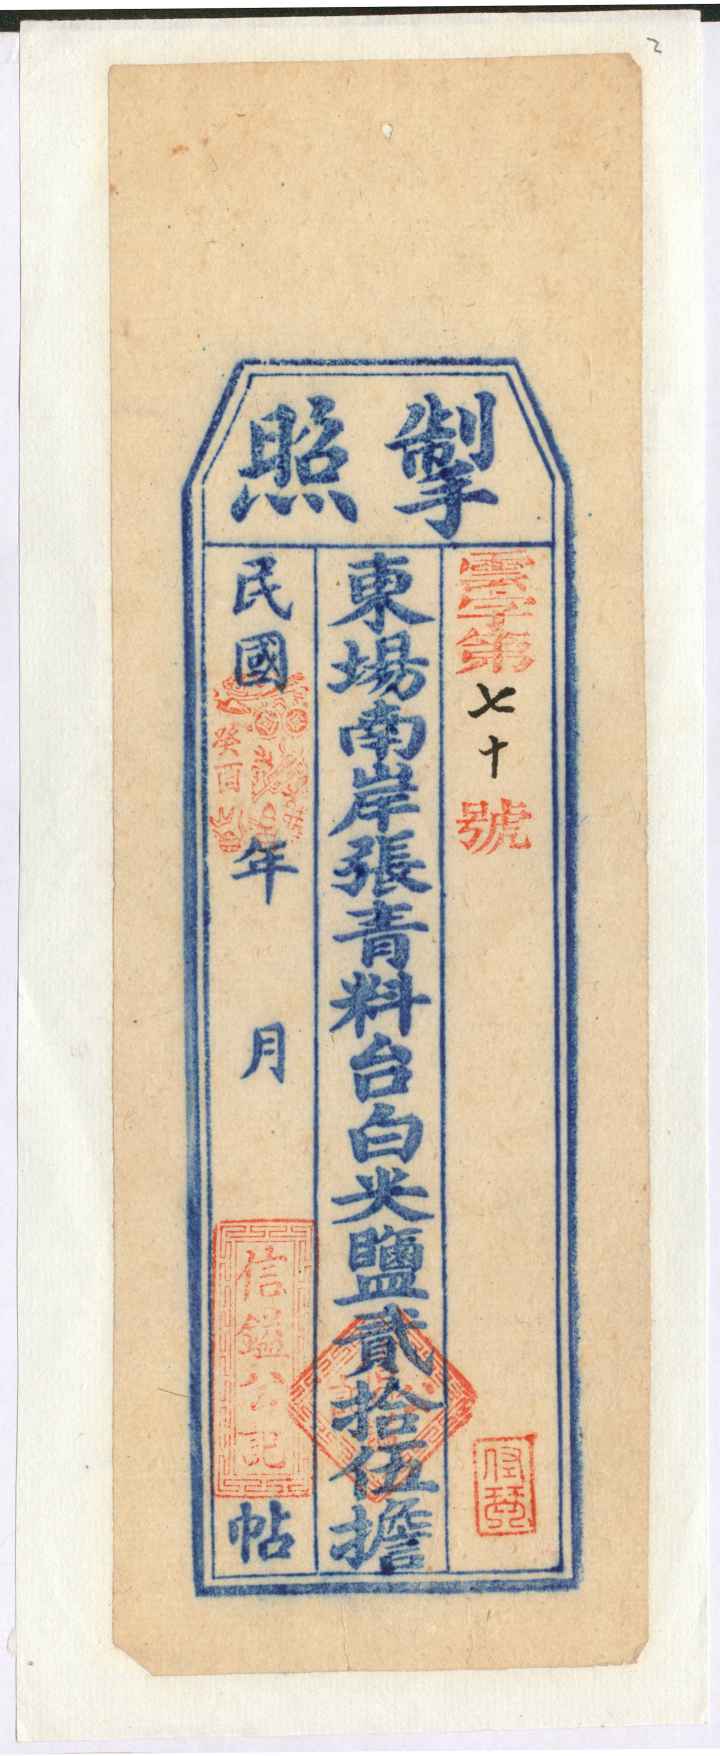 2
掣照
雲字第七十號
東場南岸張青料台白尖鹽貳拾伍擔
民國
癸酉
年 月
信鎰公記
帖